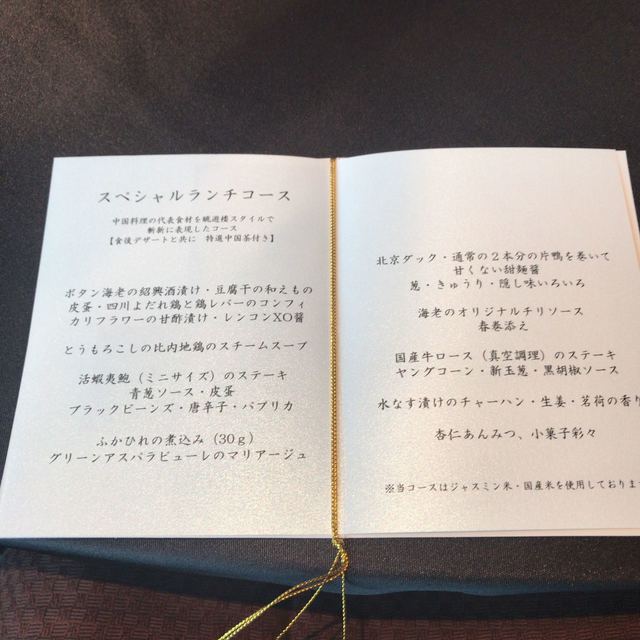 スペシャルランチコース
中国料理の代表食材を眺遊楼スタイルで
斬新に表現したコース
【食後デザートと共に 特選中国茶付き】
ボタン海老の紹興酒漬け・豆腐干の和えもの
皮蛋・四川よだれ鶏と鶏レバーのコンフィ
カリフラワーの甘酢漬け・レンコンXO醤
とうもろこしの比内地鶏のスチームスープ
活蝦夷鮑（ミニサイズ）のステーキ
青葱ソース・皮蛋
ブラックビーンズ・唐辛子・パプリカ
ふかひれの煮込み（30g）
グリーンアスパラピューレのマリアージュ
北京ダック・通常の２本分の片鴨を巻いて
甘くない甜麺醤
葱・きゅうり・隠し味いろいろ
海老のオリジナルチリソース
春巻添え
国産牛ロース（真空調理）のステーキ
ヤングコーン・新玉葱・黒胡椒ソース
水なす漬けのチャーハン・生姜・茗荷の香り
杏仁あんみつ、小菓子彩々
※当コースはジャスミン米・国産米を使用しております